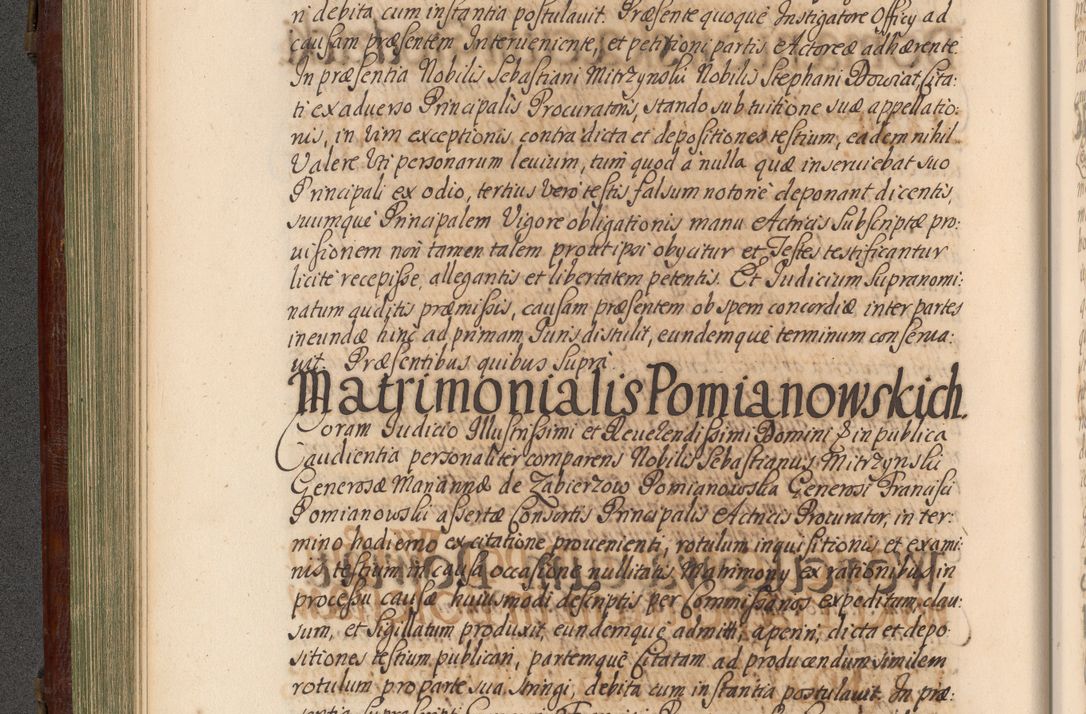 ri debita cum instantia postulavit. Præsente quoque Instigatore Officy ad
causam præsentem Interveniente, et petitioni partis Actoreæ adhærente.
In præsentia Nobilis Sebastiani Mitrzynski Nobilis Stephani Dowiat, Cita:
ti ex adverso Principalis Procuratoris, stando sub tuitione suæ appellatio:
nis, in vim exceptionis contra dicta et depositiones testium, eadem nihil
Valere Uti personarum levium, tum quod a nulla quæ inserviebat suo
Principali ex odio, tertius Vero testis falsum notorie deponant dicentis,
suumque Principalem Vigore obligationis manu Actricis Subscriptæ pro:
visionem non tamen talem prout ipsi obycitur et Testes testificantur
licite recepisse, allegantis et libertatem petentis. Et Iudicium supranomi:
natum auditis præmissis, causam præsentem ob spem concordiæ inter partes
ineundæ hinc ad primam Iuris distulit, eundemque terminum conserva:
vit. Præsentibus quibus supra.
Matrimonialis Pomianowskich.
Coram Iudicio Illustrissimi et Reverendissimi Domini & in publica
audientia personaliter comparens Nobilis Sebastianus Mitrzynski
Generosæ Mariannæ de Zabierzow Pomianowska Generosi Francisci
Pomianowski assertæ Consortis Principalis Actricis Procurator, in ter:
mino hodierno ex citatione provenienti, rotulum inquisitionis et exami:
nis testium in causa occasione nullitatis Matrimony ex rationibus in
processu causæ huiusmodi descriptis per Commissarios expeditum, clau:
sum, et Sigillatum produxit, eundemque admitti, aperiri, dicta et depo
sitiones testium publicari, partemque Citatam ad producendum similem
rotulum pro parte sua, stringi, debita cum instantia postulavit. In præ: